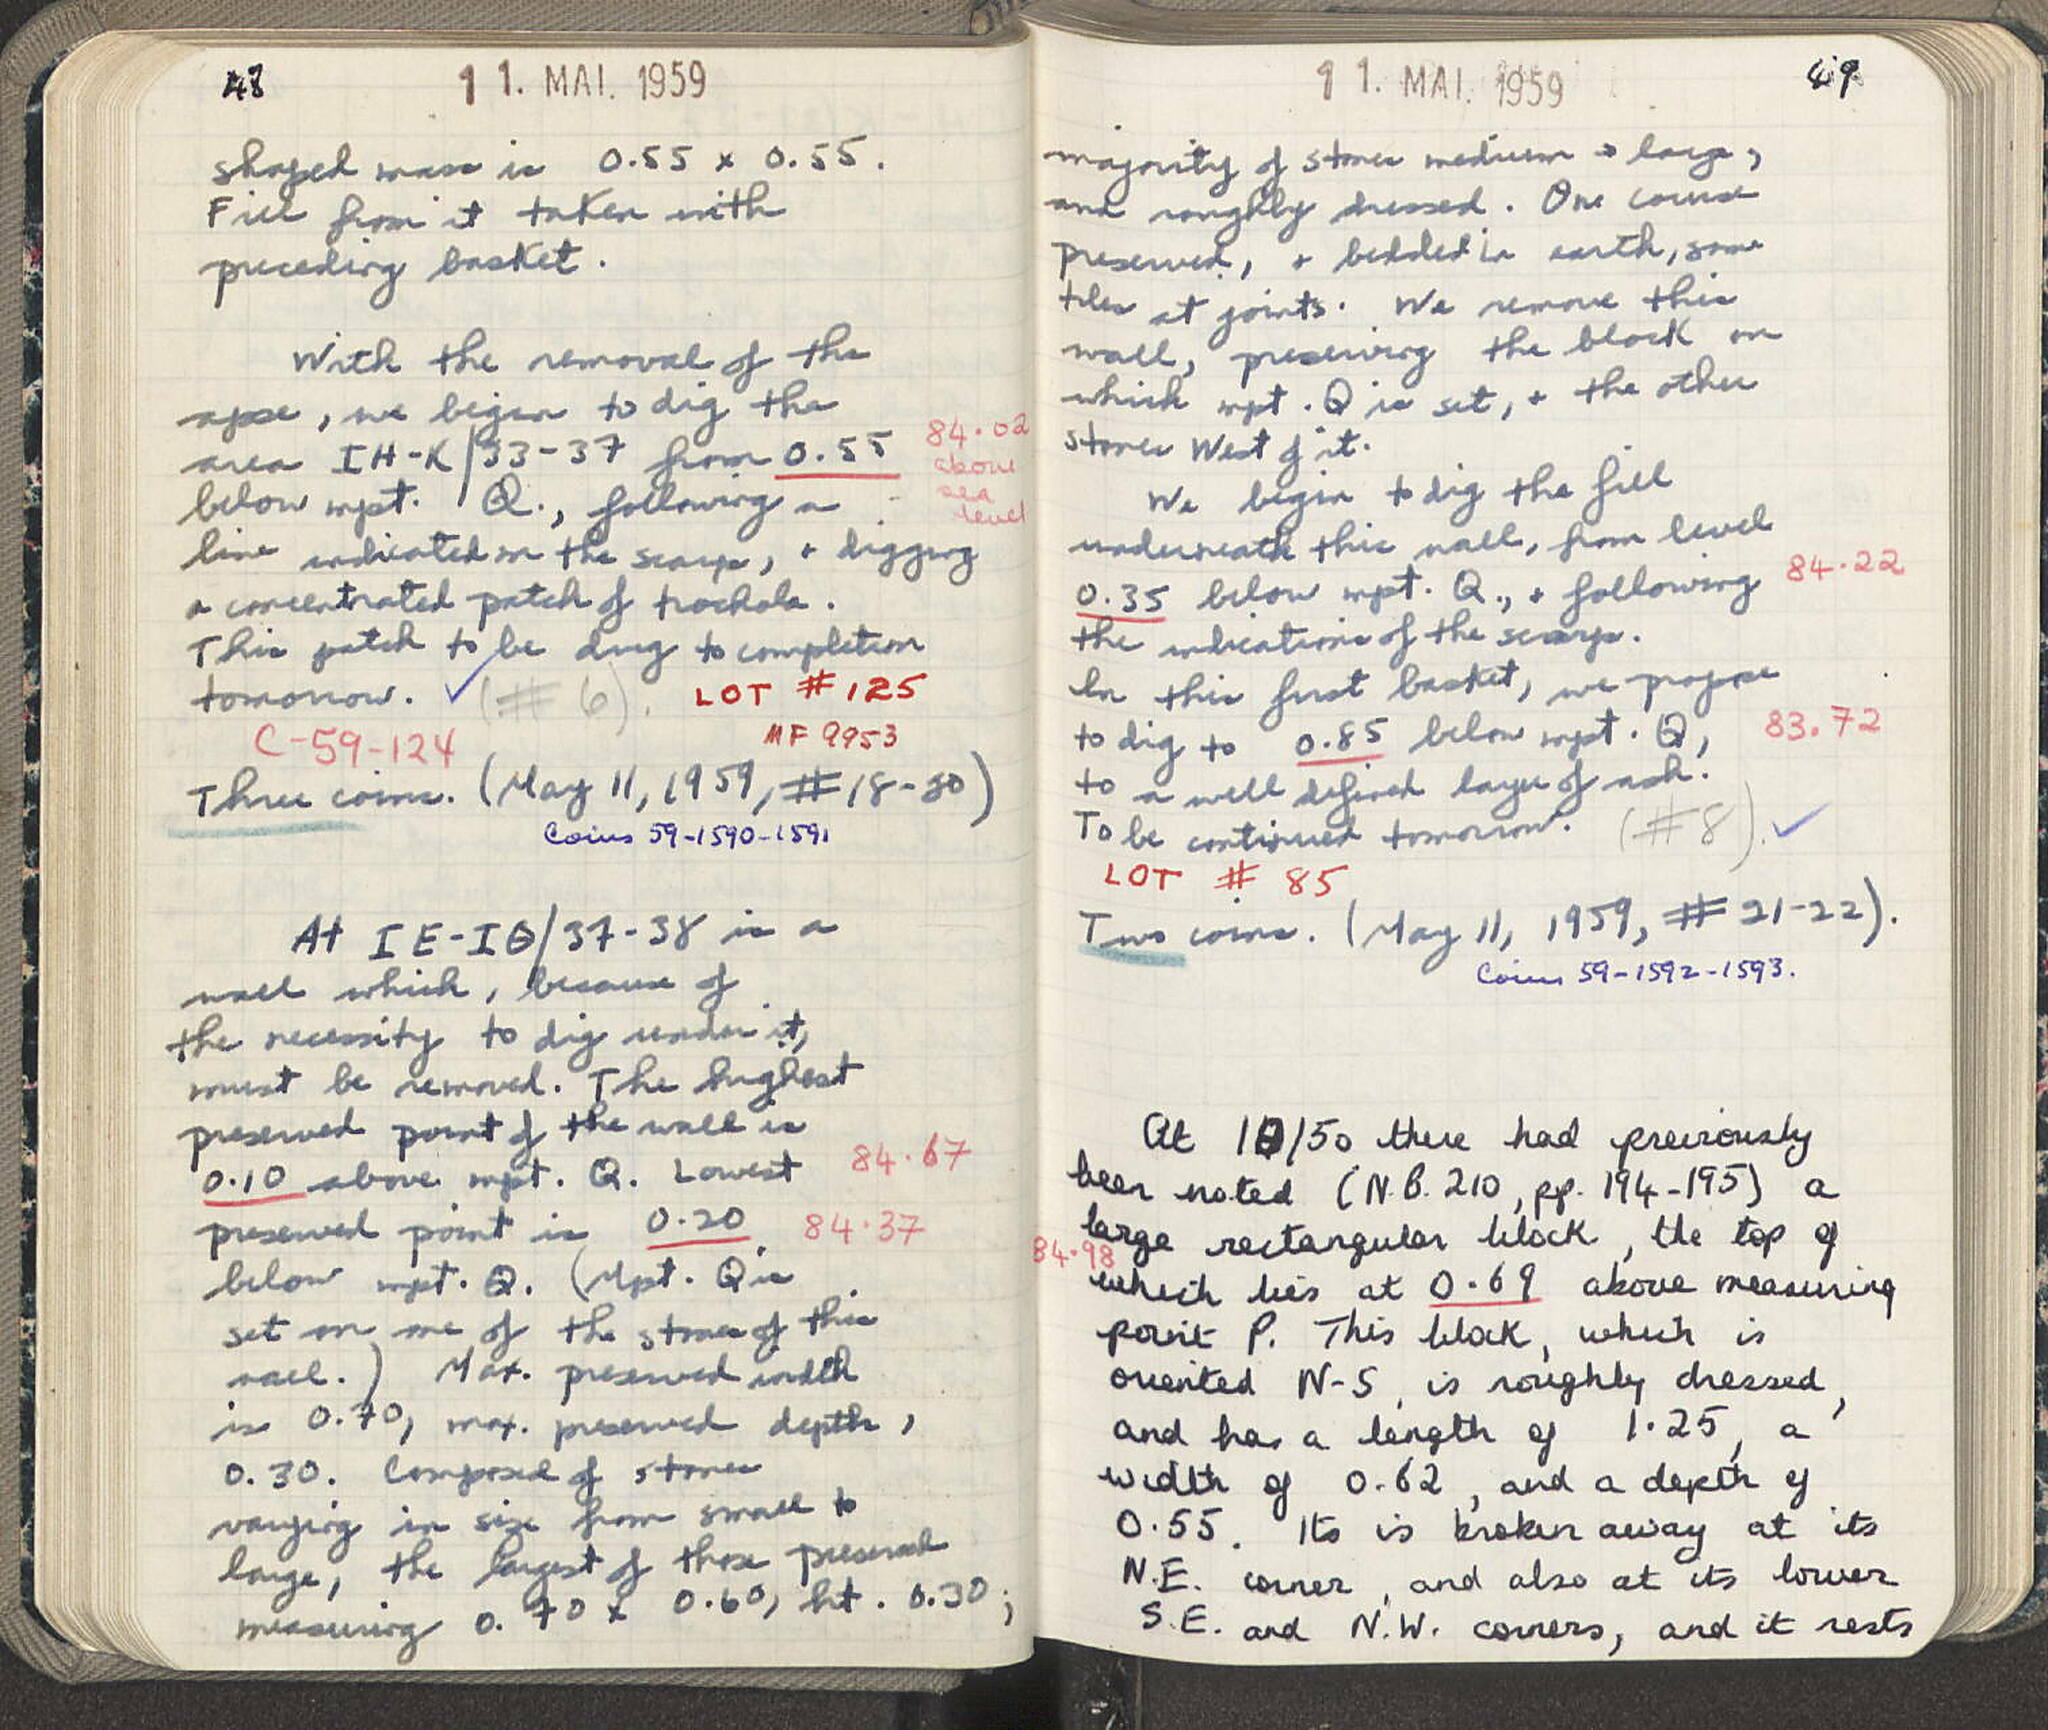 48
11. MAI. 1959
shaped mass is 0.55 x 0.55.
Fill from it taken with
preceding basket.
With the removal of the
apse, we began to dig the
area IH-K/33-37 from 0.55
84.02
above
sea
level
below mpt. Q., following a
line indicated in the scarp, + digging
a concentrated patch of trochala.
This patch to be dug to completion
tomorrow. ✓ (#6). LOT #125
C-59-124 MF 9953
Three coins. (May 11, 1959, #18-20)
Coins 59-1590-1591
At IE-IΘ/37-38 is a
wall which, because of
the necessity to dig under it,
must be removed. The highest
preserved point of the wall is
0.10 above mpt. Q. Lowest 84.67
preserved point is 0.20 84.37
below mpt. Q. (Mpt. Q is
set on one of the stones of this
wall.) Max. preserved width
is 0.70, max. preserved depth,
0.30. Composed of stones
varying in size from small to
large, the largest of those preserved
measuring 0.70 x 0.60, ht. 0.30;
11. MAI. 1959
49
majority of stones medium → large,
and roughly dressed. One course
preserved, + bedded in earth, some
tiles at joints. We remove this
wall, preserving the block on
which mpt. Q is set, + the other
stones West of it.
We begin to dig the fill
underneath this wall, from level
0.35 below mpt. Q., + following 84.22
the indications of the scarp.
In this first basket, we propose
to dig to 0.85 below mpt. Q, 83.72
to a well defined layer of ash.
To be continued tomorrow. (#8). ✓
LOT # 85
Two coins. (May 11, 1959, #21-22).
Coins 59-1592-1593.
At IΘ/50 there had previously
been noted (N.B. 210, pp. 194-195) a
large rectangular block, the top of
84.98
which lies at 0.69 above measuring
point P. This block, which is
oriented N-S, is roughly dressed,
and has a length of 1.25, a
width of 0.62, and a depth of
0.55. Its is broken away at its
N.E. corner, and also at its lower
S.E. and N.W. corners, and it rests